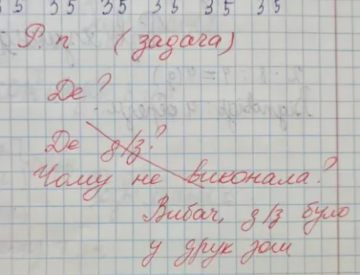 35 35 35 35 35 35
Р. п. (задача)
Де?
Де д/з?
Чому не виконала?
Вибач, д/з було
у друк зош